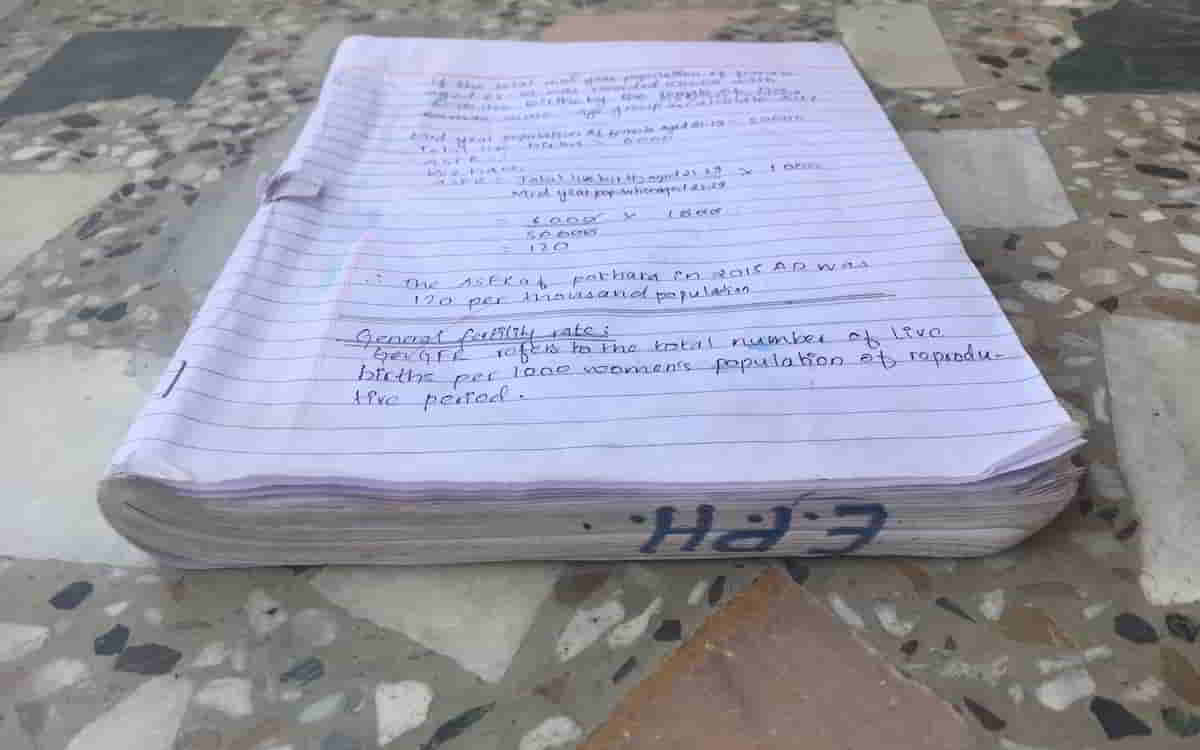 If the total mid year population of female
aged
births by the female of
age group calculate
Mid year population of female aged 21-29 = 50000
Total live births = 6000
ASFR = ?
We have,
ASFR = Total live births aged 21-29 × 1000
Mid year population aged 21-29
= 6000 × 1000
50000
= 120
∴ The ASFR of pokhara in 2015 AD was
120 per thousand population
General fertility rate:
GFR refers to the total number of live
births per 1000 women's population of reprodu-
tive period.
E.P.H.